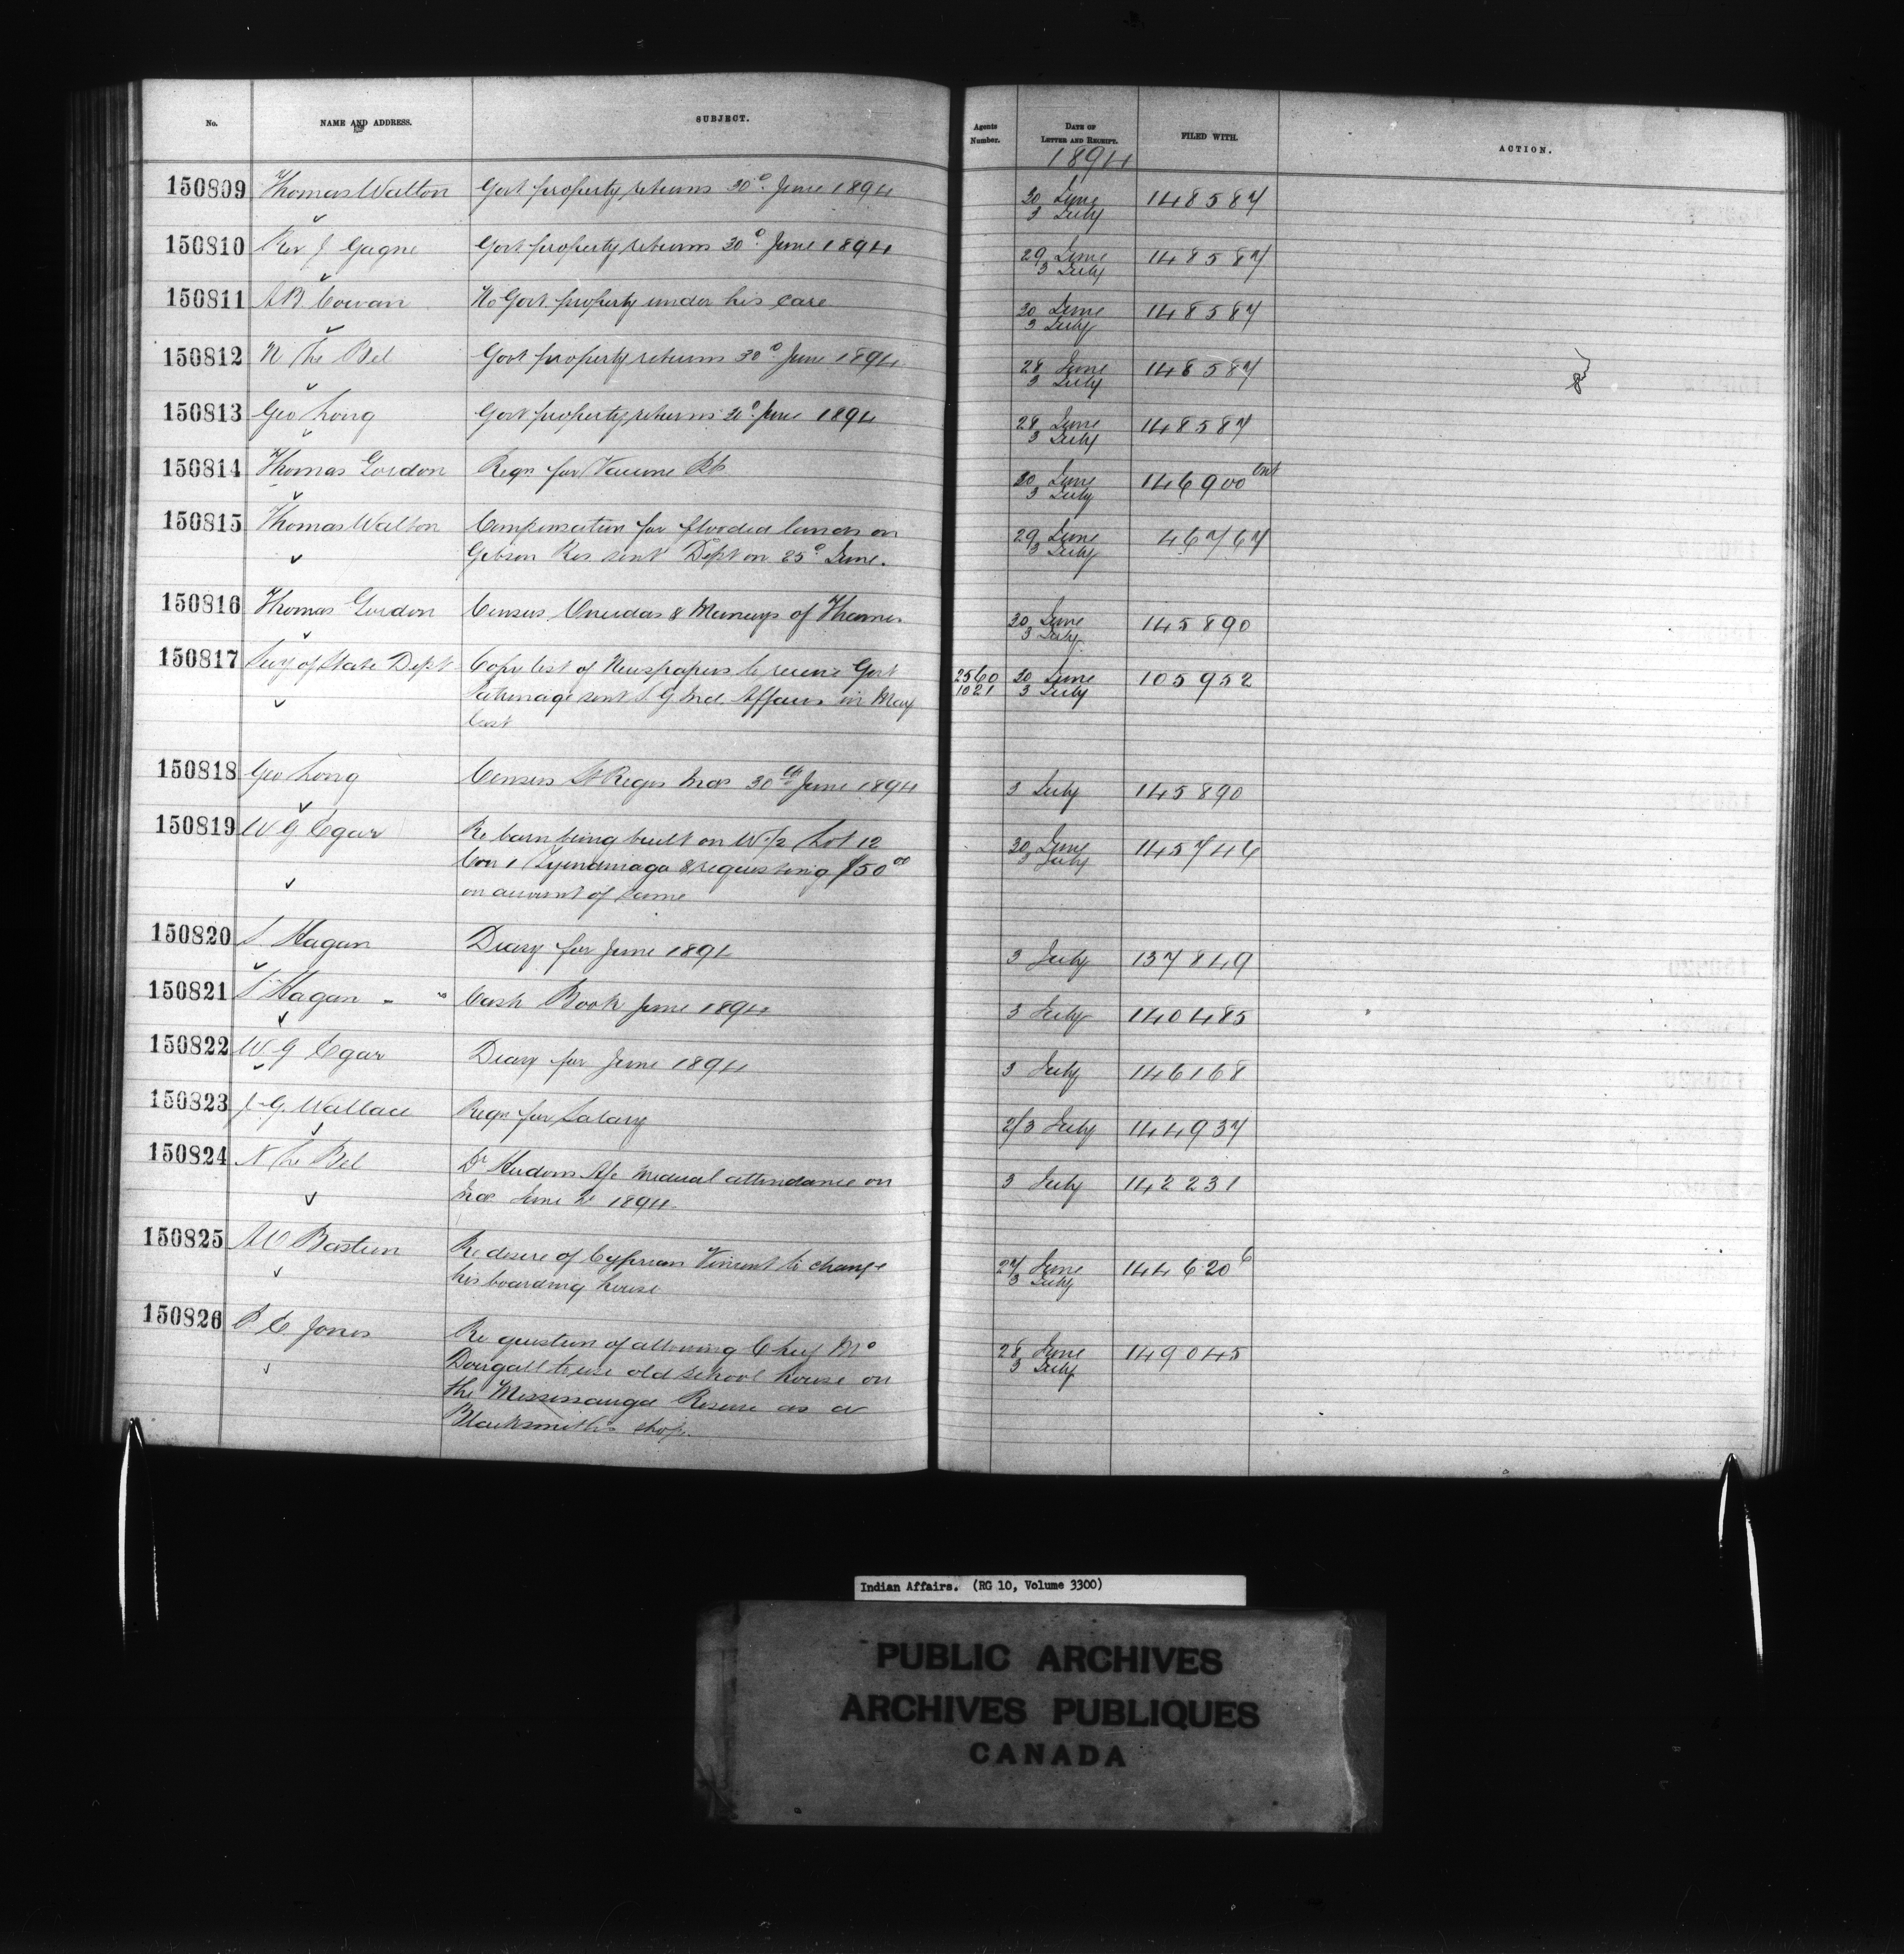 No. NAME AND ADDRESS. SUBJECT. Agents Number. DATE OF LETTER AND RECEIPT. FILED WITH. ACTION.
1894
150809 Thomas Walton Govt property returns 30° June 1894 30 June 148587
3 July
150810 Rev J Gagne Govt property returns 30° June 1894 29 June 148587
3 July
150811 A B Cowan No Govt property under his care 30 June 148587
3 July
150812 N Le Bel Govt property returns 30° June 1894 28 June 148587
3 July
150813 Geo Long Govt property returns 30° June 1894 28 June 148587
3 July
150814 Thomas Gordon Reqn for Vaccine 30 June 146900
3 July
150815 Thomas Walton Compensation for flooded lands on 29 June 46767
Gibson Res sent Dept on 25° June. 3 July
150816 Thomas Gordon Census Oneidas & Munceys of Thames 30 June 145890
3 July
150817 Secy of State Dept Copy list of Newspapers to receive Govt 2560 30 June 105952
patronage sent S. G. Ind. Affairs in May 1021 3 July
last
150818 Geo Long Census St Regis Inds 30th June 1894 3 July 145890
150819 W G Egar Re barn being built on W 1/2 Lot 12 30 June 145746
Con 1 Tyendinaga & requesting $50 00 3 July
on account of same
150820 S. Hagan Diary for June 1894 3 July 137849
150821 S. Hagan Cash Book June 1894 3 July 140485
150822 W G Egar Diary for June 1894 3 July 146168
150823 J. G. Wallace Reqn for Salary 2/3 July 144937
150824 N Le Bel Dr Hudons A/c medical attendance on 3 July 142231
Inds June 1894.
150825 A O Bastien Re desire of Cyprien Vincent to change 27 June 144620 6
his boarding house 3 July
150826 P. E. Jones Re question of allowing Chief Mc 28 June 149045
Dougall to use old school house on 3 July
the Mississauga Reserve as a
Blacksmith's shop.
Indian Affairs. (RG 10, Volume 3300)
PUBLIC ARCHIVES
ARCHIVES PUBLIQUES
CANADA